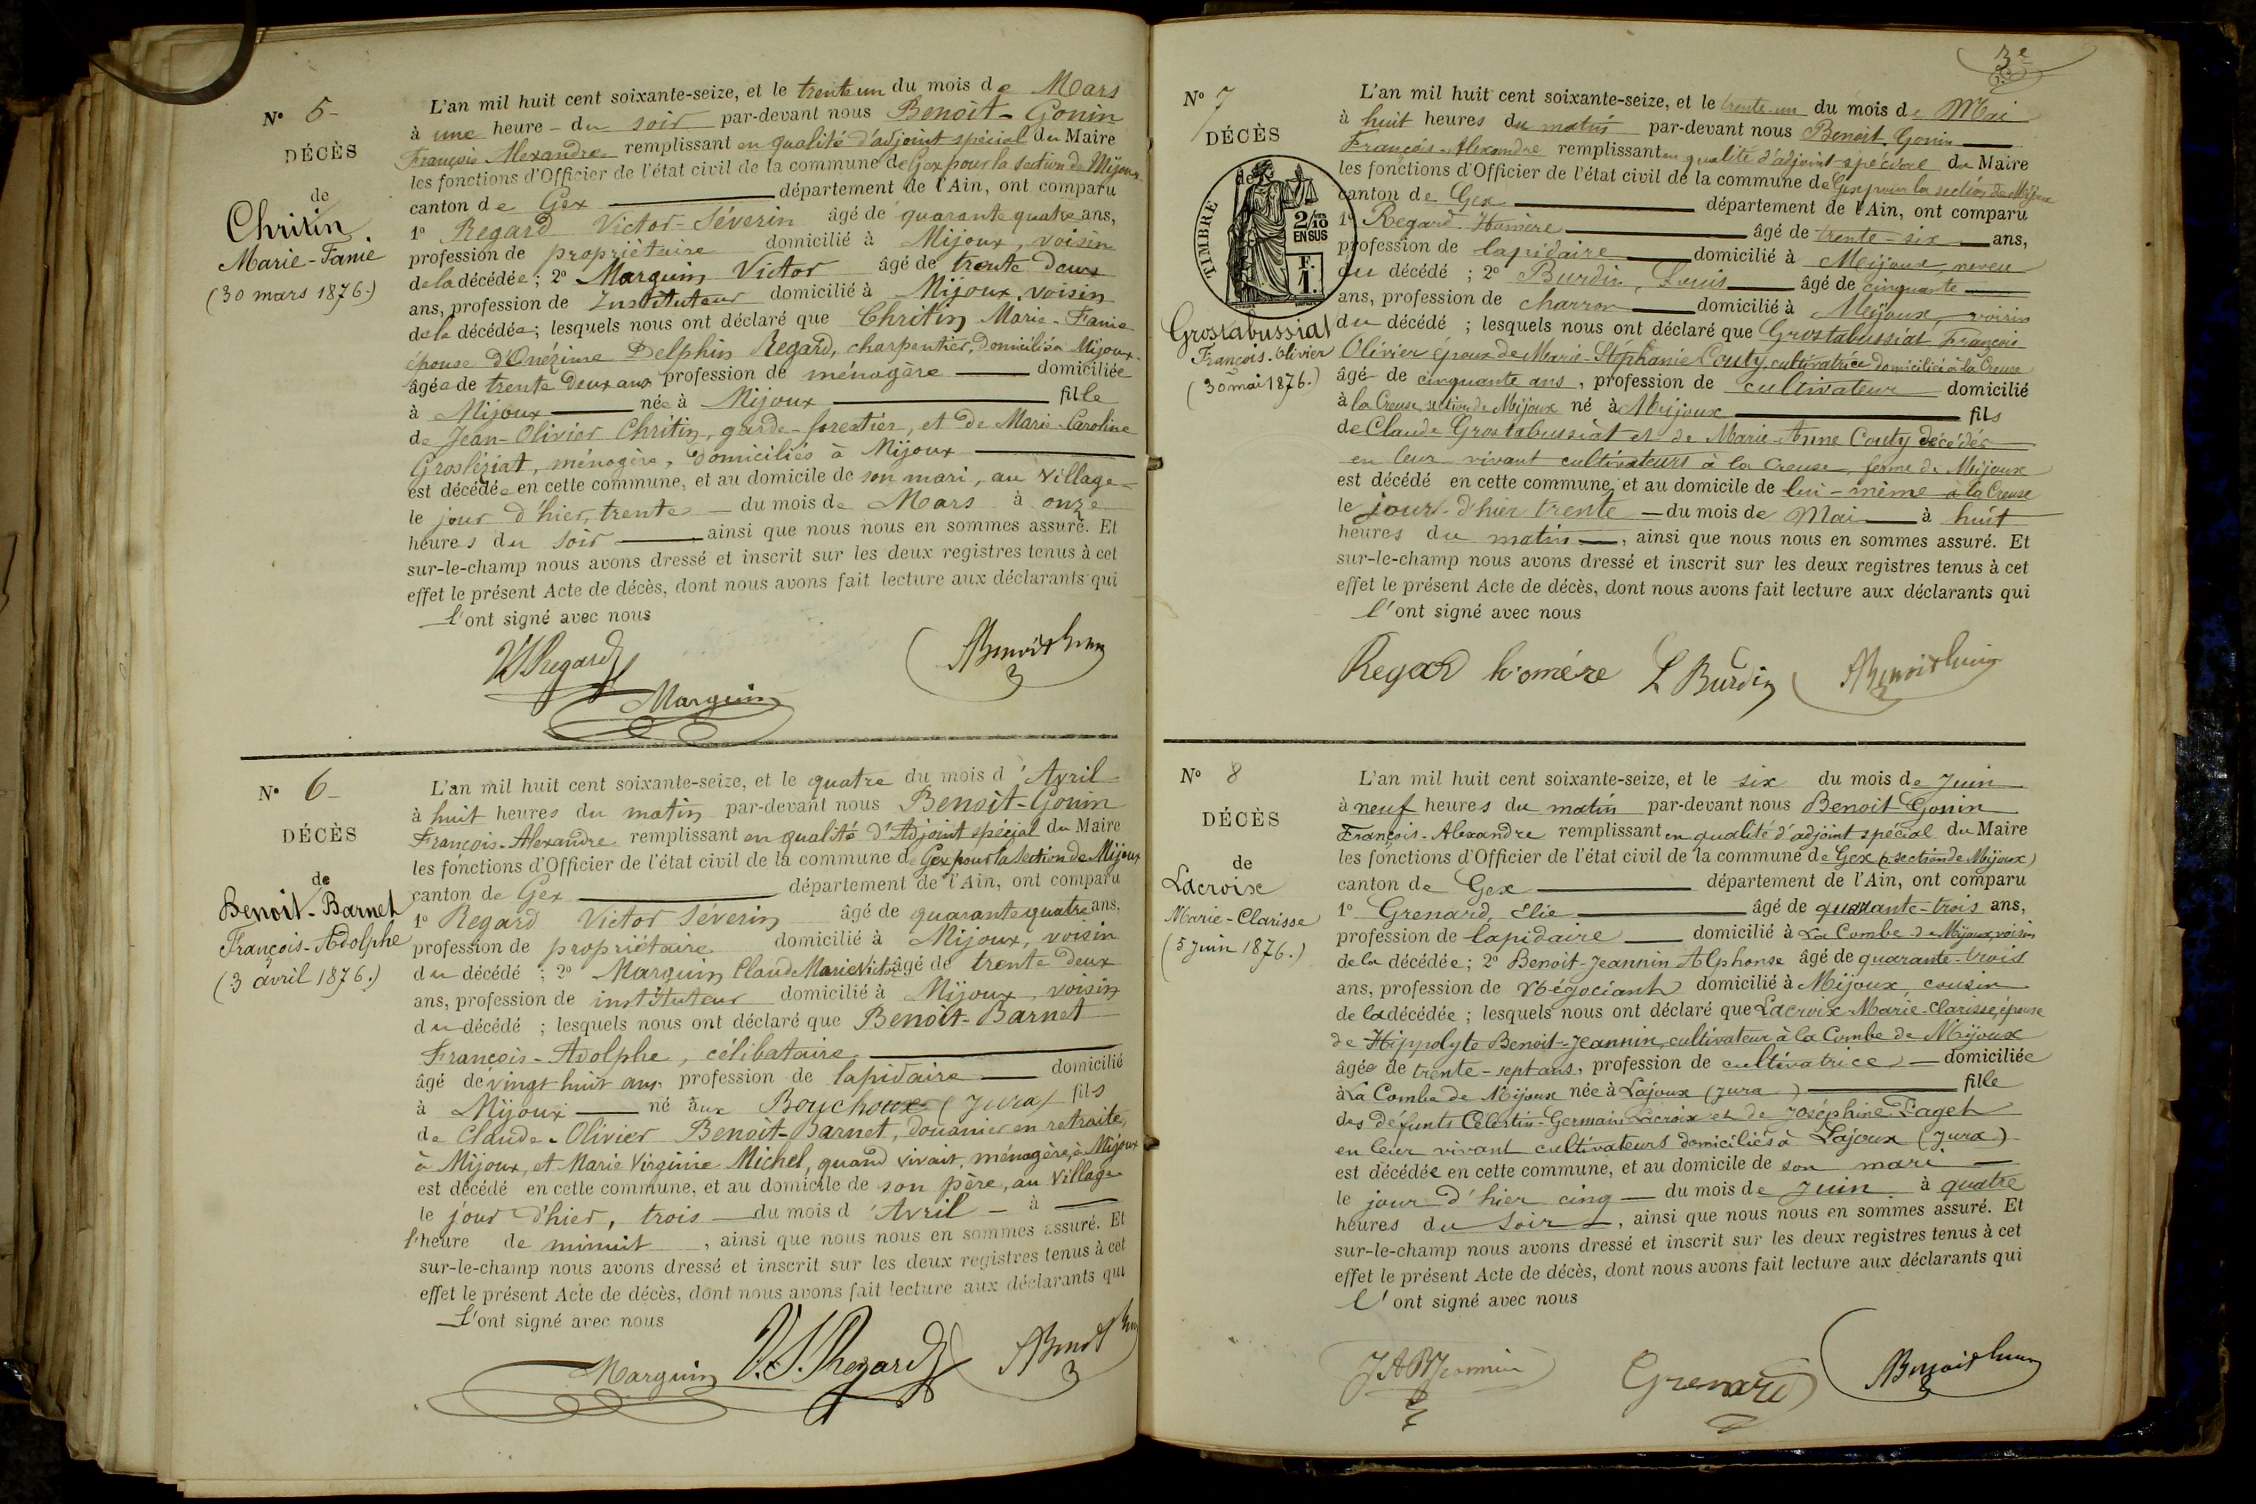 N° 5
DÉCÈS
de
Chritin
Marie-Fanie
(30 mars 1876.)
L'an mil huit cent soixante-seize, et le trente un du mois de Mars
à une heure du soir par-devant nous Benoit-Gonin
François Alexandre remplissant en qualité d'adjoint spécial du Maire
les fonctions d'Officier de l'état civil de la commune de Gex pour la section de Mijoux
canton de Gex département de l'Ain, ont comparu
1° Regard Victor-Séverin âgé de quarante quatre ans,
profession de propriétaire domicilié à Mijoux, voisin
de la décédée ; 2° Marquin Victor âgé de trente deux
ans, profession de Instituteur domicilié à Mijoux, voisin
de la décédée ; lesquels nous ont déclaré que Chritin Marie-Fanie
épouse d'Onézime Delphin Regard, charpentier, domicilié à Mijoux
âgée de trente deux ans profession de ménagère domiciliée
à Mijoux née à Mijoux fille
de Jean-Olivier Chritin, garde-forestier, et de Marie-Caroline
Grosléziat, ménagère, domiciliés à Mijoux
est décédée en cette commune, et au domicile de son mari, au village
le jour d'hier, trente du mois de Mars à onze
heures du soir ainsi que nous nous en sommes assuré. Et
sur-le-champ nous avons dressé et inscrit sur les deux registres tenus à cet
effet le présent Acte de décès, dont nous avons fait lecture aux déclarants qui
l'ont signé avec nous
VSRegard
Marquin
N° 6
DÉCÈS
de
Benoit-Barnet
François-Adolphe
(3 avril 1876.)
L'an mil huit cent soixante-seize, et le quatre du mois d'Avril
à huit heures du matin par-devant nous Benoit-Gonin
François-Alexandre remplissant en qualité d'Adjoint spécial du Maire
les fonctions d'Officier de l'état civil de la commune de Gex pour la Section de Mijoux
canton de Gex département de l'Ain, ont comparu
1° Regard Victor Séverin âgé de quarante quatre ans,
profession de propriétaire domicilié à Mijoux, voisin
du décédé ; 2° Marquin Claude Marie Victor âgé de trente deux
ans, profession de instituteur domicilié à Mijoux, voisin
du décédé ; lesquels nous ont déclaré que Benoit-Barnet
François-Adolphe, célibataire,
âgé de vingt huit ans, profession de lapidaire domicilié
à Mijoux né aux Bouchoux (Jura) fils
de Claude-Olivier Benoit-Barnet, douanier en retraite,
à Mijoux, et Marie Virginie Michel, quand vivait, ménagère, à Mijoux
est décédé en cette commune, et au domicile de son père, au village
le jour d'hier, trois du mois d'Avril à
l'heure de minuit , ainsi que nous nous en sommes assuré. Et
sur-le-champ nous avons dressé et inscrit sur les deux registres tenus à cet
effet le présent Acte de décès, dont nous avons fait lecture aux déclarants qui
l'ont signé avec nous
Marquin V.S.Regard
3e
N° 7
DÉCÈS
de
TIMBRE
2/10
EN SUS
F.
1.
Grostabussiat
François-Olivier
(30 mai 1876.)
L'an mil huit cent soixante-seize, et le trente-un du mois de Mai
à huit heures du matin par-devant nous Benoit-Gonin
François-Alexandre remplissant en qualité d'adjoint-spécial du Maire
les fonctions d'Officier de l'état civil de la commune de Gex pour la section de Mijoux
canton de Gex département de l'Ain, ont comparu
1° Regard Homère âgé de trente-six ans,
profession de lapidaire domicilié à Mijoux, neveu
du décédé ; 2° Burdin, Louis âgé de cinquante
ans, profession de charron domicilié à Mijoux, voisin
du décédé ; lesquels nous ont déclaré que Grostabussiat François
Olivier époux de Marie-Stéphanie Couty, cultivatrice domiciliée à la Creuse
âgé de cinquante ans, profession de cultivateur domicilié
à la Creuse, section de Mijoux né à Mijoux fils
de Claude Grostabussiat et de Marie-Anne Couty décédés
en leur vivant cultivateurs à la Creuse, ferme de Mijoux
est décédé en cette commune, et au domicile de lui-même à la Creuse
le jour d'hier trente du mois de Mai à huit
heures du matin , ainsi que nous nous en sommes assuré. Et
sur-le-champ nous avons dressé et inscrit sur les deux registres tenus à cet
effet le présent Acte de décès, dont nous avons fait lecture aux déclarants qui
l'ont signé avec nous
Regard homére L Burdin
N° 8
DÉCÈS
de
Lacroix
Marie-Clarisse
(5 juin 1876.)
L'an mil huit cent soixante-seize, et le six du mois de Juin
à neuf heures du matin par-devant nous Benoit Gonin
François-Alexandre remplissant en qualité d'adjoint spécial du Maire
les fonctions d'Officier de l'état civil de la commune de Gex (section de Mijoux)
canton de Gex département de l'Ain, ont comparu
1° Grenard, Elie âgé de quarante-trois ans,
profession de lapidaire domicilié à La Combe de Mijoux, voisin
de la décédée ; 2° Benoit-Jeannin Alphonse âgé de quarante-trois
ans, profession de Négociant domicilié à Mijoux, cousin
de la décédée ; lesquels nous ont déclaré que Lacroix Marie-Clarisse, épouse
de Hippolyte Benoit-Jeannin, cultivateur à la Combe de Mijoux
âgée de trente-sept ans, profession de cultivatrice domiciliée
à La Combe de Mijoux née à Lajoux (Jura) fille
des défunts Célestin-Germain Lacroix et de Joséphine Faget
en leur vivant cultivateurs domiciliés à Lajoux (Jura)
est décédée en cette commune, et au domicile de son mari
le jour d'hier cinq du mois de Juin à quatre
heures du soir , ainsi que nous nous en sommes assuré. Et
sur-le-champ nous avons dressé et inscrit sur les deux registres tenus à cet
effet le présent Acte de décès, dont nous avons fait lecture aux déclarants qui
l'ont signé avec nous
Grenard